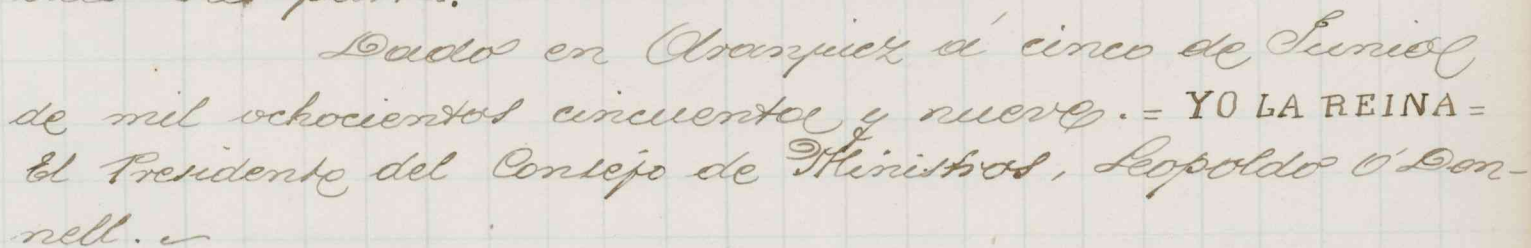 Dado en Aranjuez á cinco de Junio
de mil ochocientos cincuenta y nueve. = YO LA REINA =
El Presidente del Consejo de Ministros, Leopoldo O'Don-
nell. ~